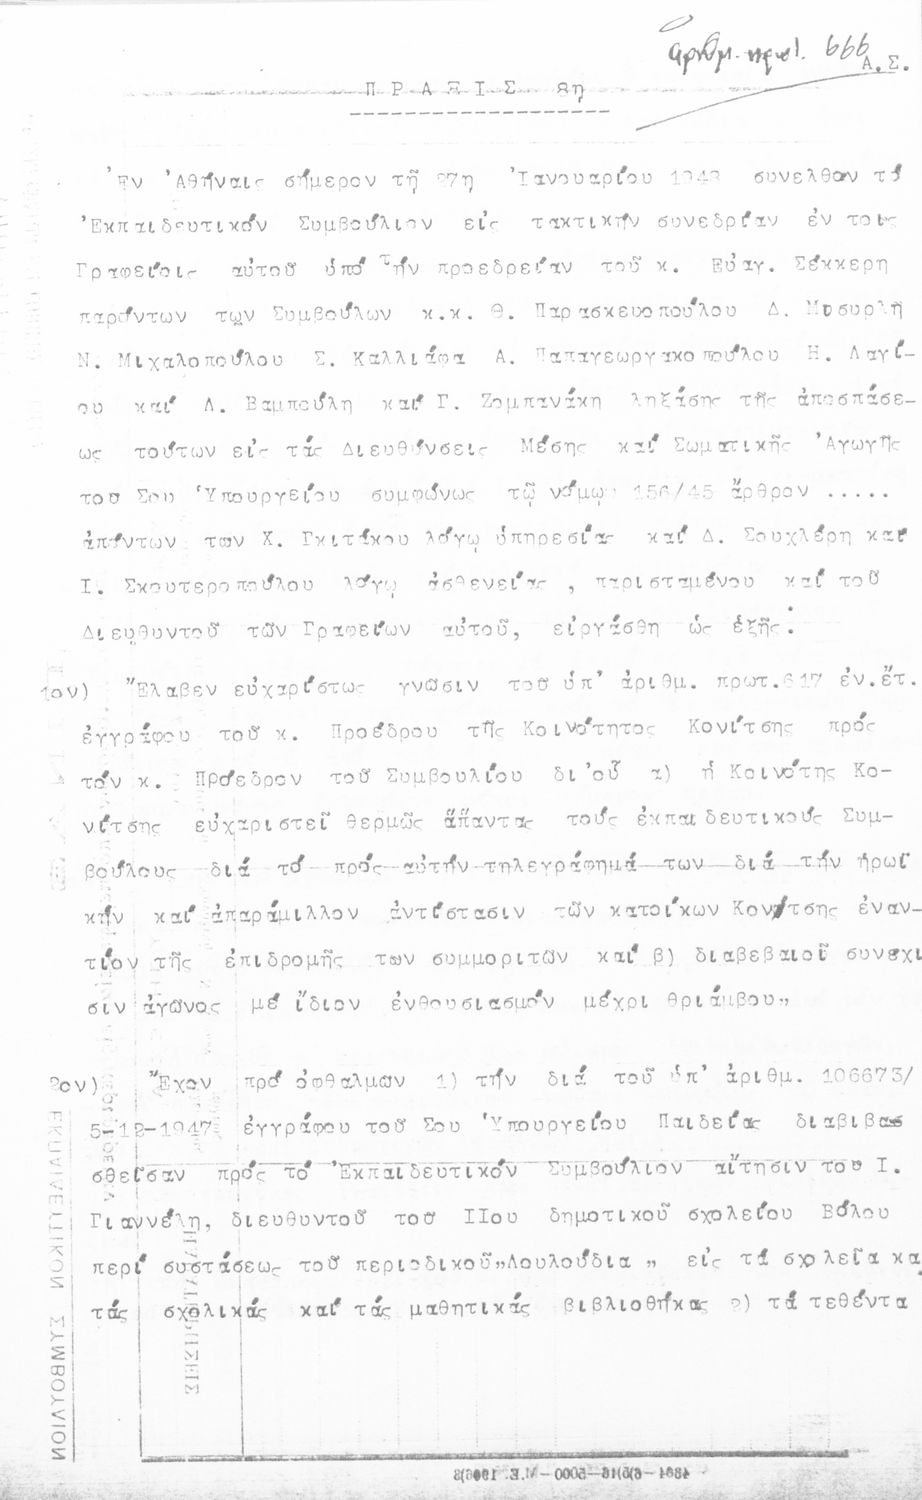 ἀριθμ. πρωτ. 666
Α.Σ.
ΠΡΑΞΙΣ 8η
Ἐν Ἀθήναις σήμερον τῇ 27η Ἰανουαρίου 1948 συνελθόν τό
Ἐκπαιδευτικόν Συμβούλιον εἰς τακτικήν συνεδρίαν ἐν τοις
Γραφείοις αὐτοῦ ὑπό τήν προεδρείαν τοῦ κ. Εὐαγ. Σέκκερη
παρόντων των Συμβούλων κ.κ. Θ. Παρασκευοπούλου Δ. Μουσουρλῆ
Ν. Μιχαλοπούλου Σ. Καλλιάφα Α. Παπαγεωργακοπούλου Η. Λαγί-
ου καί Λ. Βαμπούλη καί Γ. Ζομπανάκη ληξάσης τῆς ἀποσπάσε-
ως τούτων εἰς τάς Διευθύνσεις Μέσης καί Σωματικῆς Ἀγωγῆς
του Σου Ὑπουργείου συμφώνως τῷ νόμῳ 156/45 ἄρθρον .....
ἀπόντων των Χ. Γκιτάκου λόγῳ ὑπηρεσίας καί Δ. Σουχλέρη καί
Ι. Σκουτεροπούλου λόγῳ ἀσθενείας , παρισταμένου καί τοῦ
Διευθυντοῦ τῶν Γραφείων αὐτοῦ, εἰργάσθη ὡς ἑξῆς:
1ον) Ἔλαβεν εὐχαρίστως γνῶσιν του ὑπ' ἀριθμ. πρωτ.617 ἐν.ἔτ.
ἐγγράφου τοῦ κ. Προέδρου τῆς Κοινότητος Κονίτσης πρός
τόν κ. Πρόεδρον τοῦ Συμβουλίου δι'οὗ α) ἡ Κοινότης Κο-
νίτσης εὐχαριστεῖ θερμῶς ἅπαντας τούς ἐκπαιδευτικούς Συμ-
βούλους διά τό πρός αὐτήν τηλεγράφημά των διά τήν ἡρωϊ
κήν καί ἀπαράμιλλον ἀντίστασιν τῶν κατοίκων Κονίτσης ἐναν-
τίον τῆς ἐπιδρομῆς των συμμοριτῶν καί β) διαβεβαιοῖ συνεχι
σιν ἀγῶνος μέ ἴδιον ἐνθουσιασμόν μέχρι θριάμβου„
2ον) Ἔχον πρό ὀφθαλμων 1) τήν διά τοῦ ὑπ' ἀριθμ. 106673/
5-12-1947 ἐγγράφου τοῦ Σου Ὑπουργείου Παιδείας διαβιβασ
σθεῖσαν πρός τό Ἐκπαιδευτικόν Συμβούλιον αἴτησιν του Ι.
Γιαννέλη, διευθυντοῦ του ΙΙου δημοτικοῦ σχολείου Βόλου
περί συστάσεως τοῦ περιοδικοῦ„Λουλούδια „ εἰς τά σχολεῖα κα
τάς σχολικάς καί τάς μαθητικάς βιβλιοθήκας 2) τά τεθέντα
ΕΚΠΑΙΔΕΥΤΙΚΟΝ ΣΥΜΒΟΥΛΙΟΝ